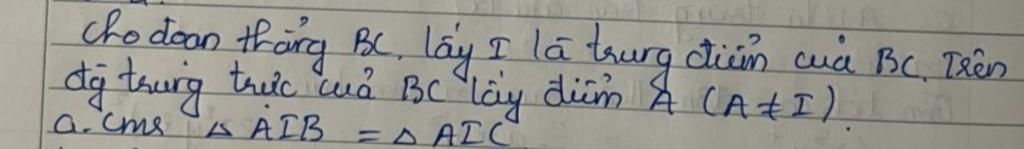 Cho đoạn thẳng BC, lấy I là trung điểm của BC. Trên
đg trung trực của BC lấy điểm A (A ≠ I).
a. Cmr △ AIB = △ AIC